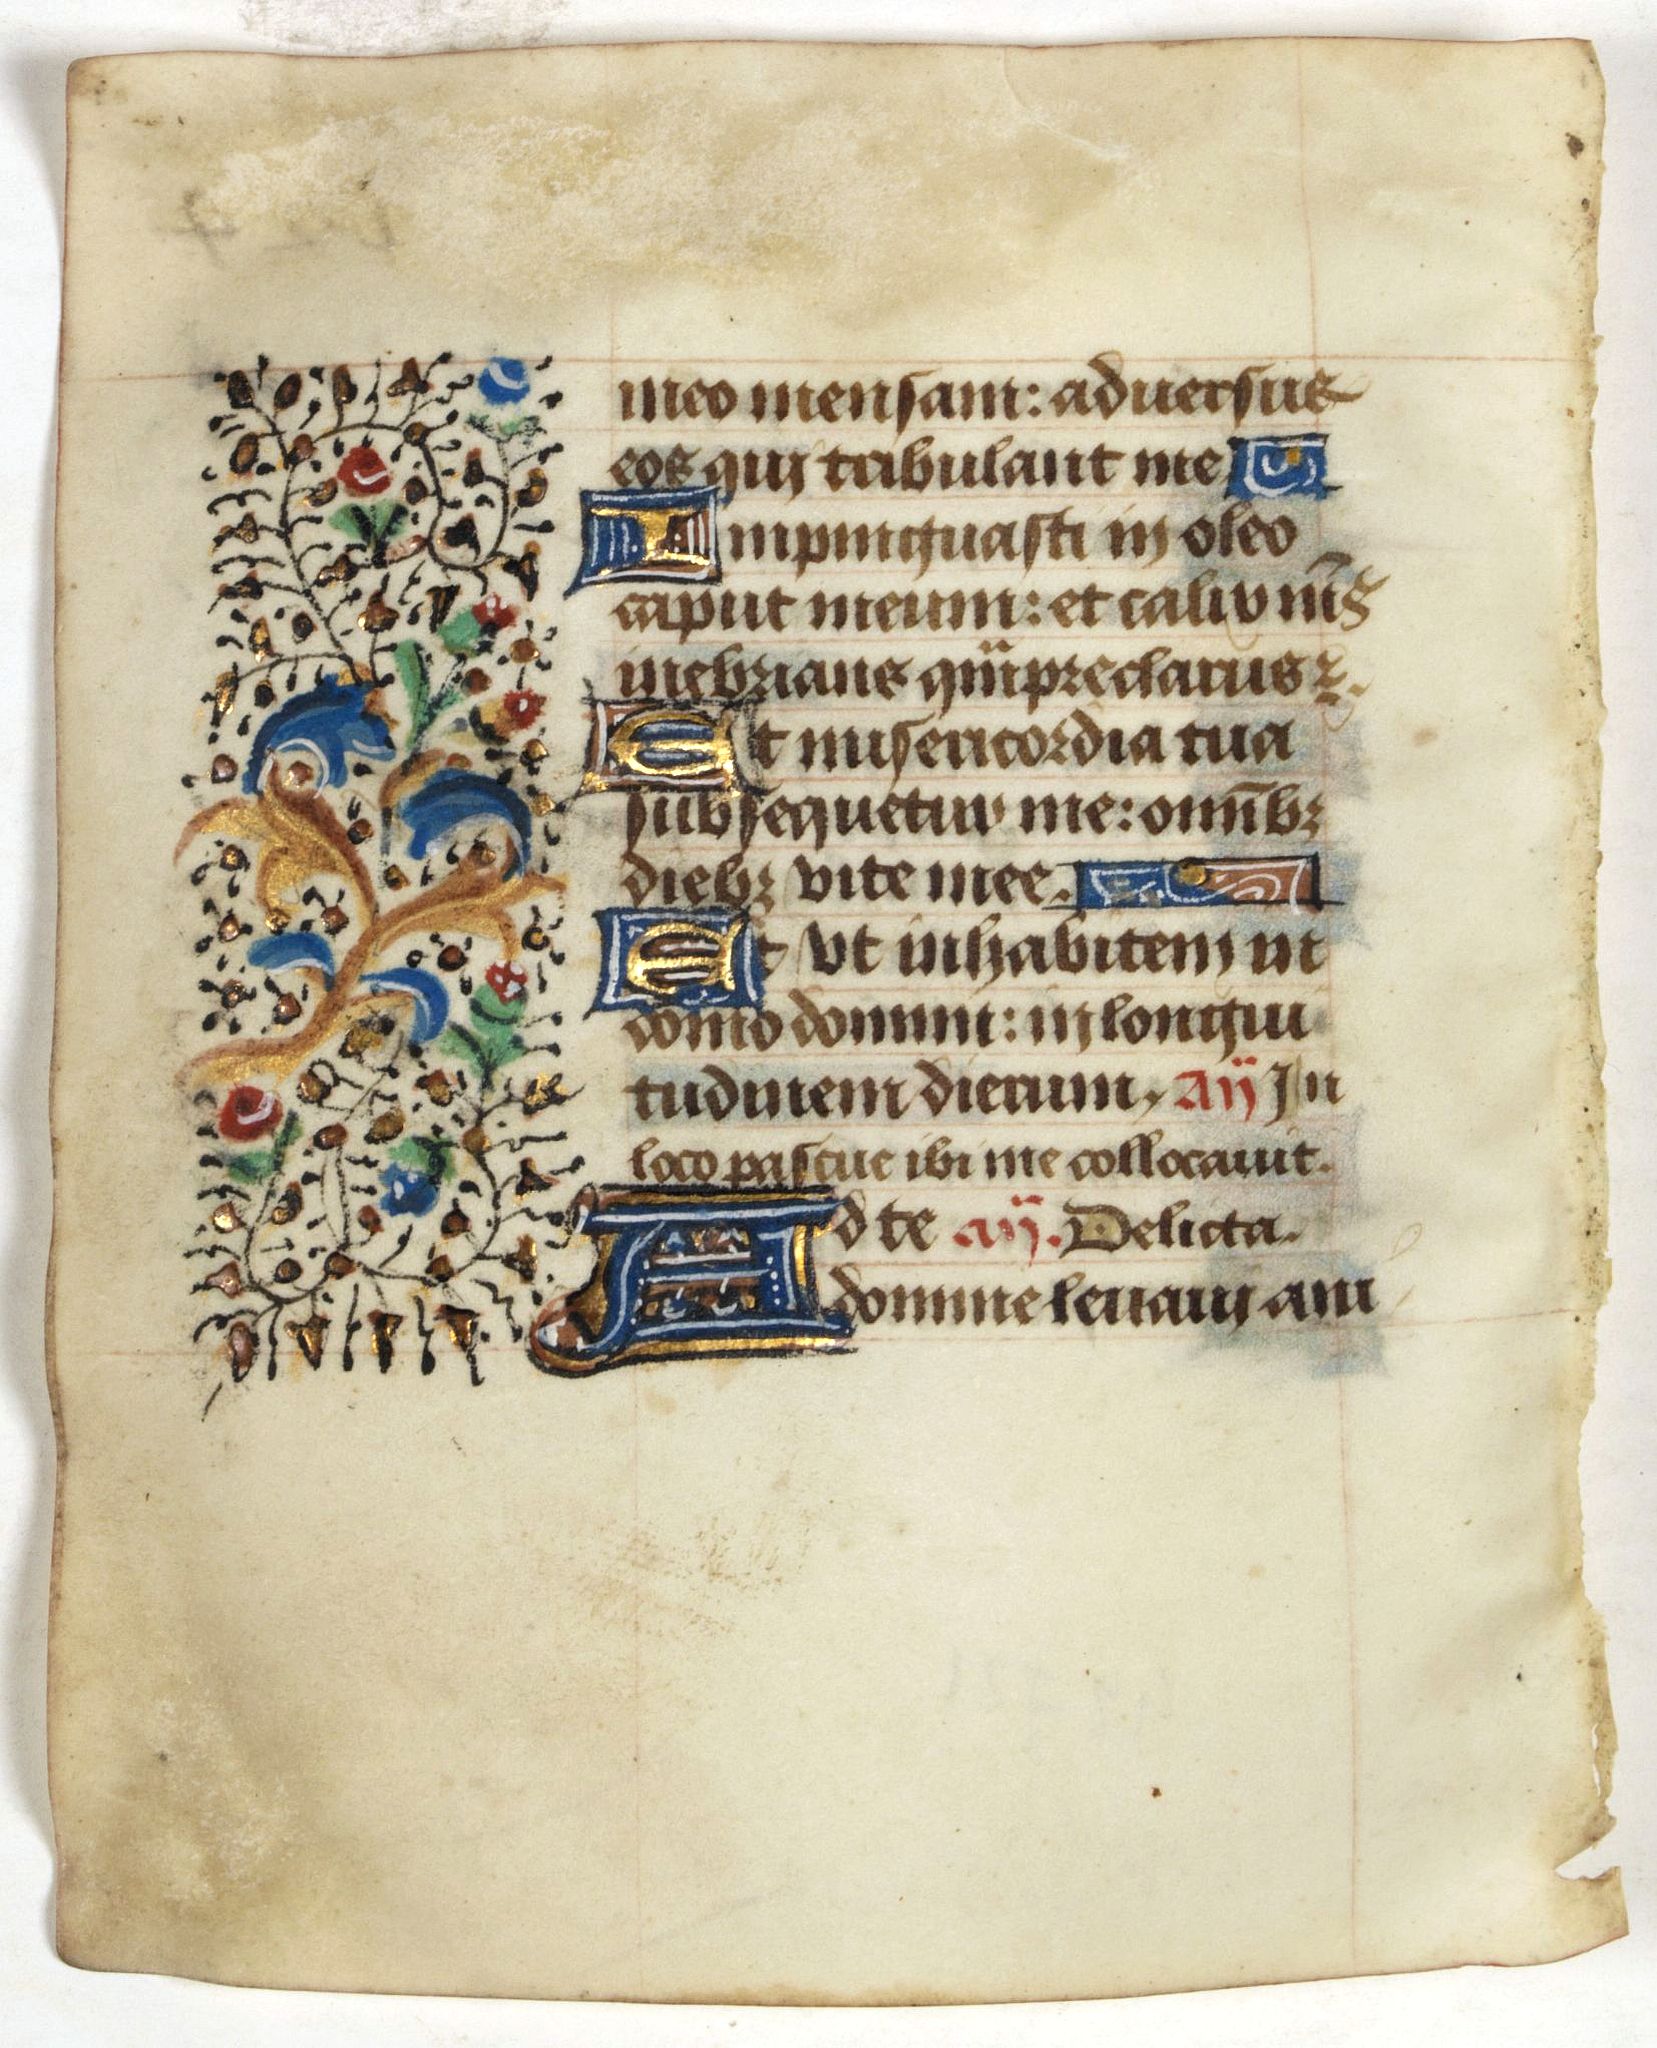 meo mensam: aduersus
eos qui tribulant me
Inpinguasti in oleo
caput meum: et calix me͂s
inebrians qm̃ preclarus ē.
Et misericordia tua
subsequetur me: omñibꝫ
diebꝫ vite mee.
Et vt inhabitem in
domo domini: in longui
tudinem dierum. añ In
loco pascue ibi me collocauit.
Ad te añ. Delicta.
domine leuaui ani